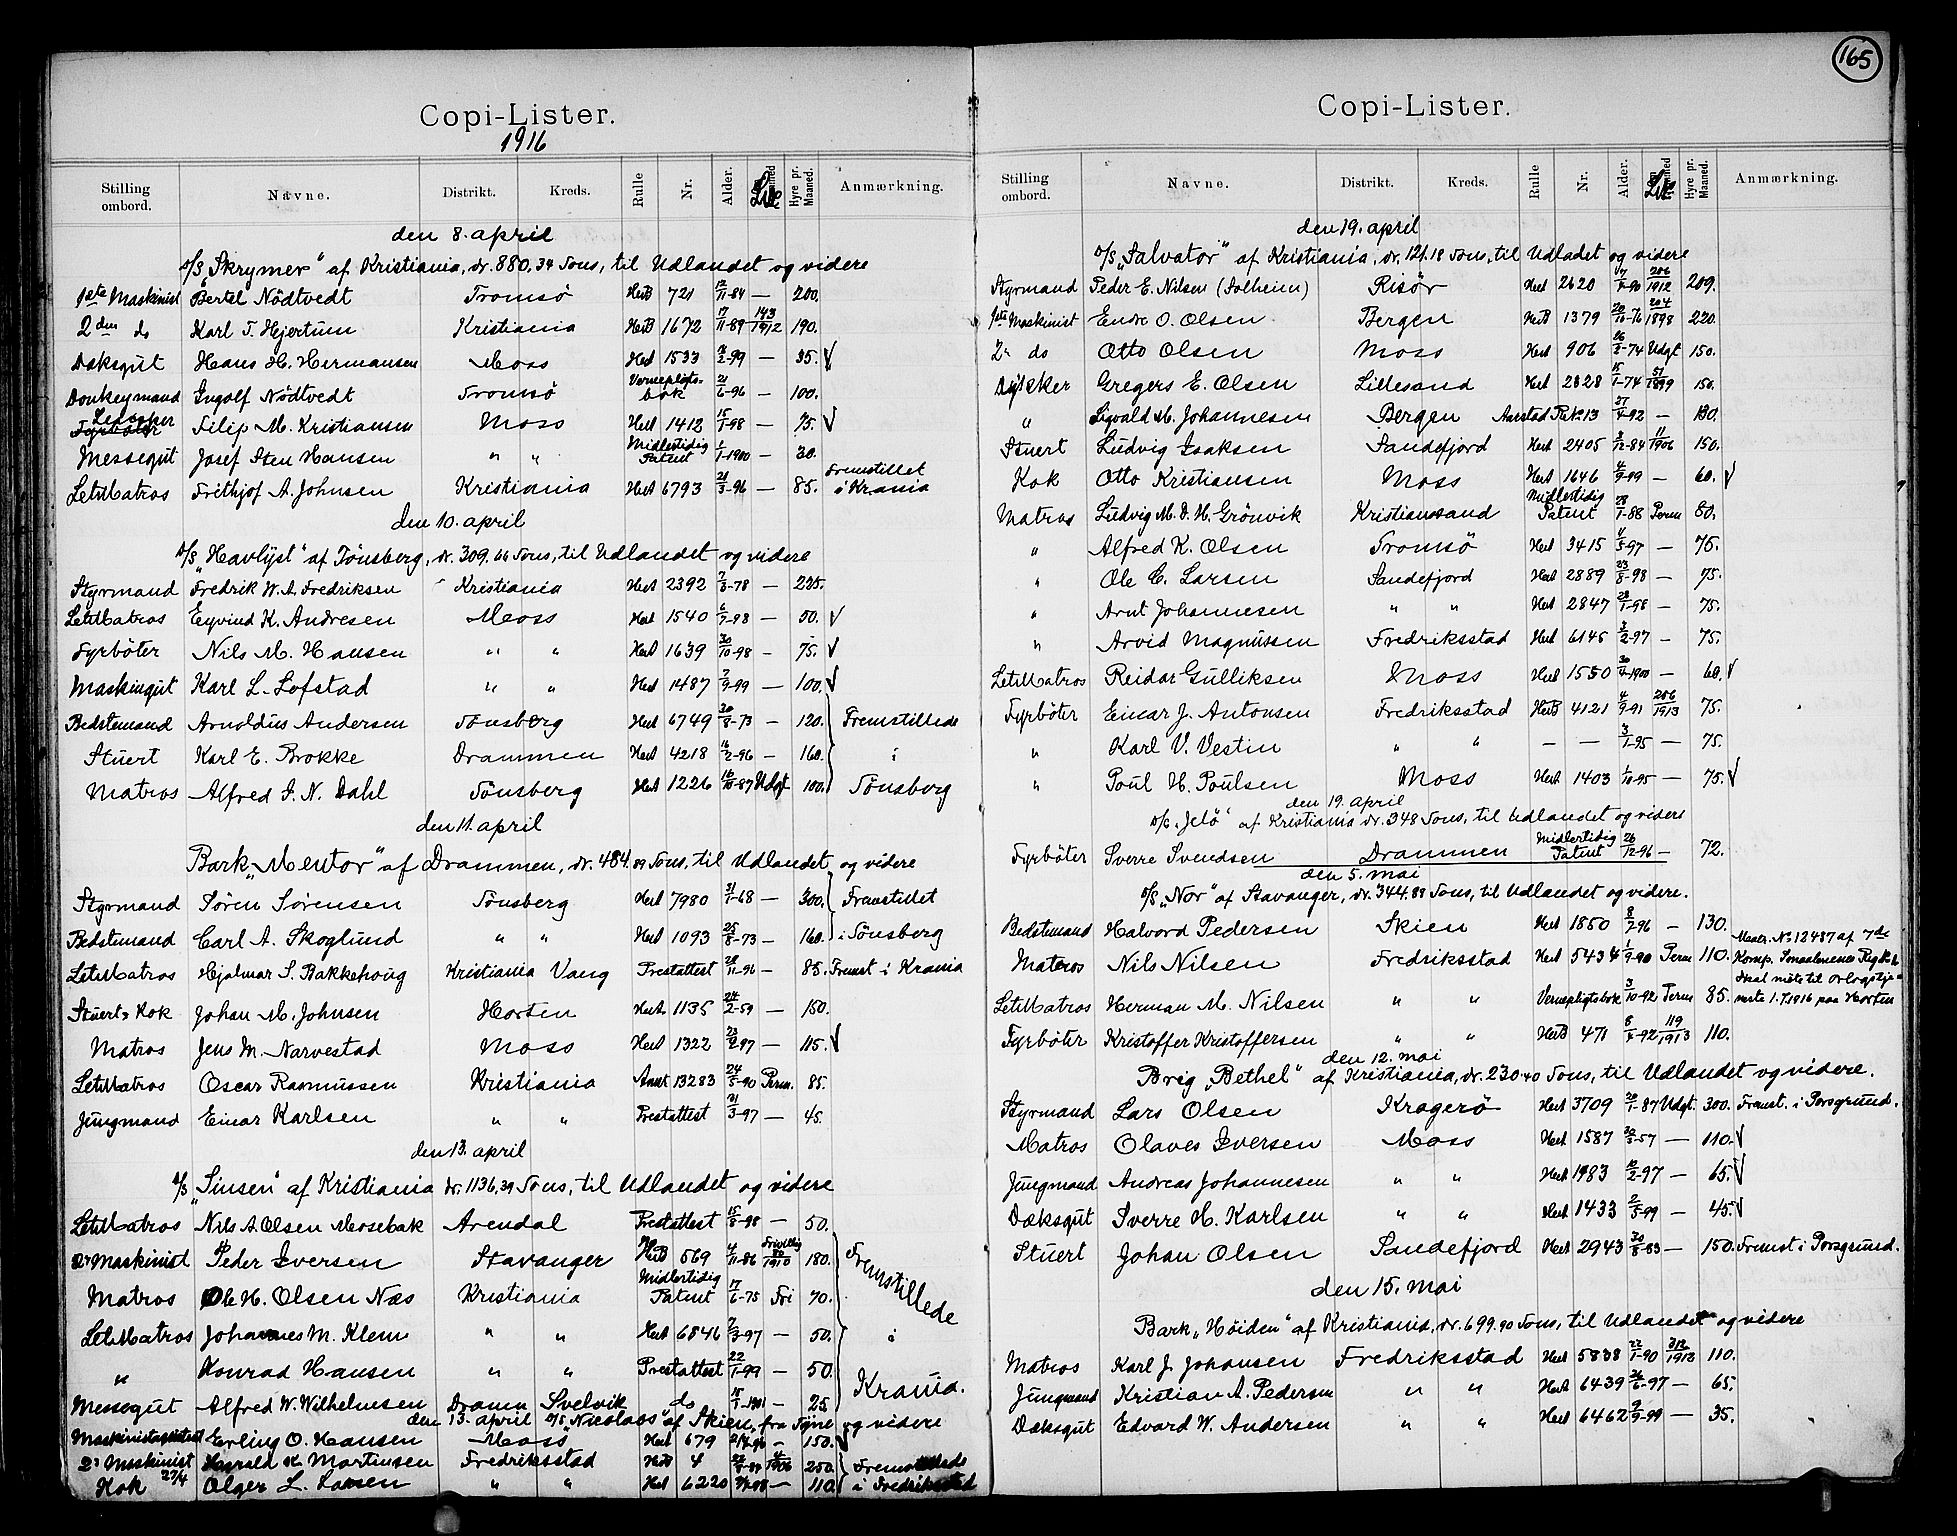 165
Copi-Lister.
1916
Stilling ombord. Navne. Distrikt. Kreds. Rulle Nr. Alder. Hyre pr. Maaned. Anmærkning.
den 8. april
D/S „Skrymer" af Kristiania, dr. 880,34 Tons, til Udlandet og videre
1ste Maskinist Bertel Nödtvedt Tromsö HerB 721 12/11-84 — 200.
2den do Karl T. Hjertum Kristiania HerB 1672 17/11-89 143/1912 190.
Dæksgut Hans H. Hermansen Moss Hert 1533 14/2-99 — 35. √
Donkeymand Ingolf Nödtvedt Tromsö Vernepligts-bok 21/6-96 — 100.
Lempeker Filip M. Kristiansen Moss Hert 1412 15/1-98 — 75. √
Messegut Josef Sten Hansen „ „ Midlertidig Patent 1/1-1900 — 30.
LetMatros Frithjof A. Johnsen Kristiania Hert 6793 21/3-96 — 85. Fremstillet i Krania
den 10. april
D/S „Havlyst" af Tönsberg, dr. 309,66 Tons, til Udlandet og videre
Styrmand Fredrik W. A. Fredriksen Kristiania Hert 2392 7/3-78 — 225.
LetMatros Eyvind K. Andresen Moss Hert 1540 6/9-98 — 50. √
Fyrböter Nils M. Hansen „ „ Hert 1639 30/10-98 — 75. √
Maskingut Karl L. Lofstad „ „ Hert 1487 7/9-99 — 100. √
Bedstemand Arnoldius Andersen Tönsberg Hert 6749 30/8-73 — 120. Fremstillede
Stuert Karl E. Brokke Drammen Hert 4218 16/2-96 — 160. i
Matros Alfred I. N. Dahl Tönsberg Hert 1226 16/10-87 Udgt 100. Tönsberg
den 11. april
Bark „Mentor" af Drammen, dr. 484,89 Tons, til Udlandet og videre
Styrmand Sören Sörensen Tönsberg Hert 7980 31/1-68 — 300. Fremstillet
Bedstemand Carl A. Skoglund „ „ Hert 1093 25/8-73 — 160. i Tönsberg
LetMatros Hjalmar S. Bakkehoug Kristiania Vang Prestattest 28/11-96 — 85. Fremst i Krania
Stuert & Kok Johan M. Johnsen Horten Hert 1135 24/2-59 — 150.
Matros Jens M. Narvestad Moss Hert 1322 23/2-97 — 115. √
LetMatros Oscar Rasmussen Kristiania Anst 13283 24/5-90 Perm. 85.
Jungmand Einar Karlsen „ „ Prestattest 31/3-97 — 45.
den 13. april
D/S „Sinsen" af Kristiania dr. 1136,39 Tons, til Udlandet og videre
LetMatros Nils A. Olsen Mosebak Arendal Prestattest 15/5-98 — 50.
2n Maskinist Peder Iversen Stavanger HerB 569 4/11-86 Frivillig 80/1910 180. Fremstillede
Matros Ole H. Olsen Næs Kristiania Midlertidig Patent 17/6-75 Fri 70.
LetMatros Johannes M. Klem „ „ Hert 6546 7/3-97 — 50. i
„ Konrad Hansen „ „ Prestattest 22/1-99 — 50.
Messegut Alfred W. Wilhelmsen Dramn Svelvik do 18/5-1901 — 25. Krania.
den 13. april D/S „Nicolaos" af Skien, fra Tyne og videre
Maskinistassistent Erling O. Hansen Moss Hert 679 2/4-96 — 150. √
2n Maskinist Harald K. Martinsen Fredriksstad HerB 4 1906 250. Fremstillede
Kok 27/4 Olger L. Larsen „ „ Hert 6220 — 110. i Fredriksstad
Copi-Lister.
Stilling ombord. Navne. Distrikt. Kreds. Rulle Nr. Alder. Hyre pr. Maaned. Anmærkning.
den 19. april
D/S „Salvator" af Kristiania, dr. 121,18 Tons, til Udladet og videre
Styrmand Peder E. Nilsen (Solheim) Risör Hert 2620 7/4-90 206/1912 209.
1ste Maskinist Endre O. Olsen Bergen HerB 1379 20/10-76 204/1898 220.
2n do Otto Olsen Moss Hert 906 26/2-74 Udgt 150.
Dykker Gregers E. Olsen Lillesand Hert 2828 15/1-74 51/1899 150.
„ Sigvald M. Johannesen Bergen Aarstad Pak. 13 27/4-92 — 130.
Stuert Ludvig Isaksen Sandefjord Hert 2405 8/12-84 11/1906 150.
Kok Otto Kristiansen Moss Hert 1646 4/9-99 — 60. √
Matros Ludvig M. D. H. Grönvik Kristianssand Midlertidig Patent 28/1-88 Perm 80.
„ Alfred K. Olsen Tromsö Hert 3415 4/5-97 — 75.
„ Ole C. Larsen Sandefjord Hert 2889 23/8-98 — 75.
„ Arnt Johannesen „ „ Hert 2847 28/1-98 — 75.
„ Arvid Magnussen Fredriksstad Hert 6145 3/2-97 — 75.
LetMatros Reidar Gulliksen Moss Hert 1550 30/4-1900 — 60. √
Fyrböter Einar J. Antonsen Fredriksstad HerB 4121 4/9-91 286/1913 75.
„ Karl V. Vestin „ „ — — 3/1-95 — 75.
„ Poul H. Poulsen Moss Hert 1403 1/10-95 — 75. √
den 19. april
D/S „Jelö" af Kristiania dr. 348 Tons, til Udlandet og videre
Fyrböter Sverre Svendsen Drammen Midlertidig Patent 26/12-96 — 72.
den 5. mai
D/S „Nor" af Stavanger, dr. 344,89 Tons, til Udlandet og videre.
Bedstemand Halvord Pedersen Skien Hert 1850 8/7-96 — 130.
Matros Nils Nilsen Fredriksstad Hert 5434 1/9-90 Perm 110. Mandr. No 12487 af 7de Komp. Smaalenenes Rgt.
LetMatros Herman M. Nilsen „ „ Vernepligtsbok 3/10-92 Perm 85. Skal möte til Orlogstjeneste 1.7.1916 paa Horten
Fyrböter Kristoffer Kristoffersen „ „ HerB 471 8/4-92 119/1913 110.
den 12. mai
Brig „Bethel" af Kristiania, dr. 230,40 Tons, til Udlandet og videre.
Styrmand Lars Olsen Kragerö Hert 3709 20/1-87 Udgt. 300. Fremst. i Porsgrund.
Matros Olaves Iversen Moss Hert 1587 30/5-57 — 110. √
Jungmand Andreas Johannesen „ „ Hert 1983 10/2-97 — 65. √
Dæksgut Sverre H. Karlsen „ „ Hert 1433 2/5-99 — 45. √
Stuert Johan Olsen Sandefjord Hert 2943 30/8-83 — 150. Fremst i Porsgrund.
den 15. mai
Bark „Höiden" af Kristiania, dr. 699,90 Tons, til Udlandet og videre
Matros Karl J. Johansen Fredriksstad Hert 5838 22/1-90 312/1913 110.
Jungmand Kristian A. Pedersen „ „ Hert 6439 26/6-97 — 65.
Dæksgut Edvard W. Andersen „ „ Hert 6462 9/9-99 — 35.